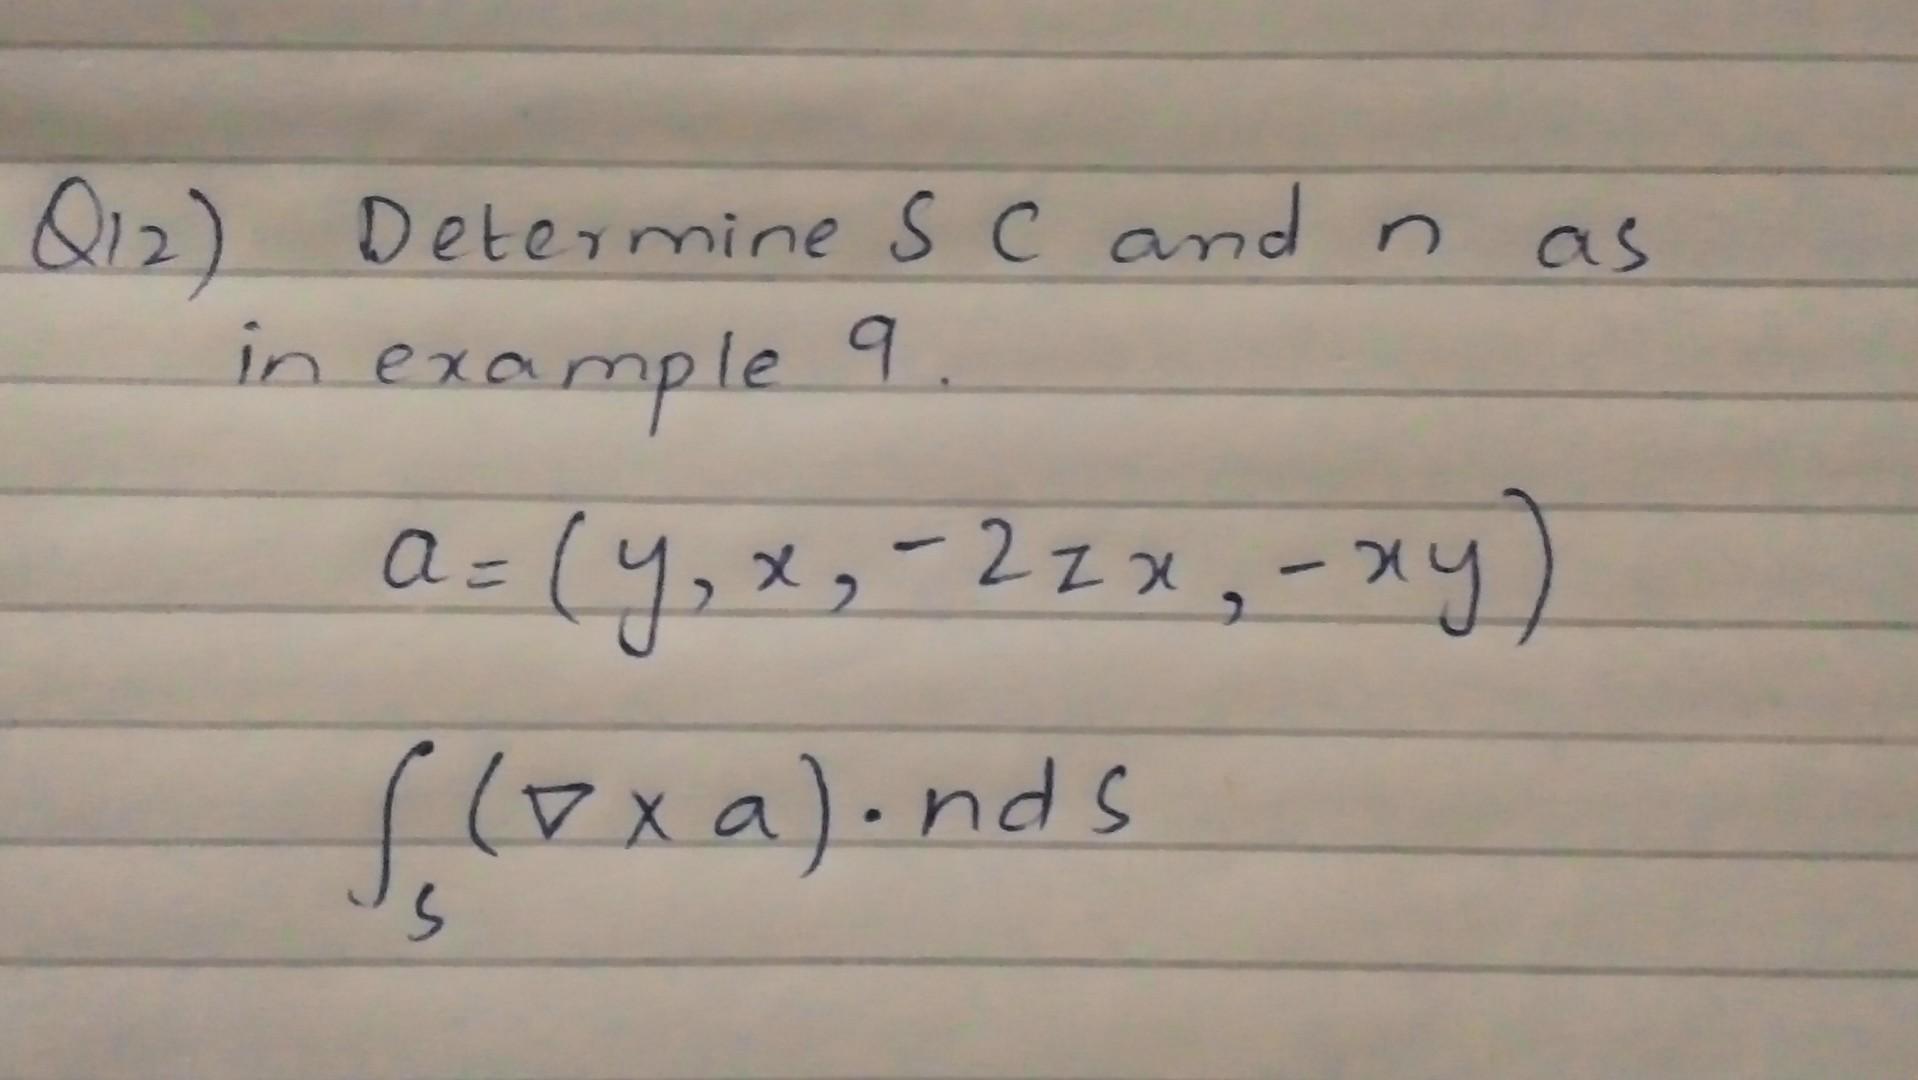 Q12) Determine S C and n as
in example 9.
a = (y, x, -2zx, -xy)
∫_S (∇ x a) · n d S